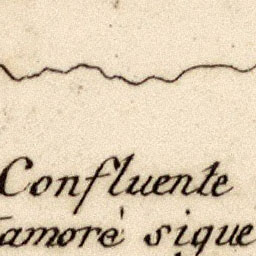 Confluente
amorè sique